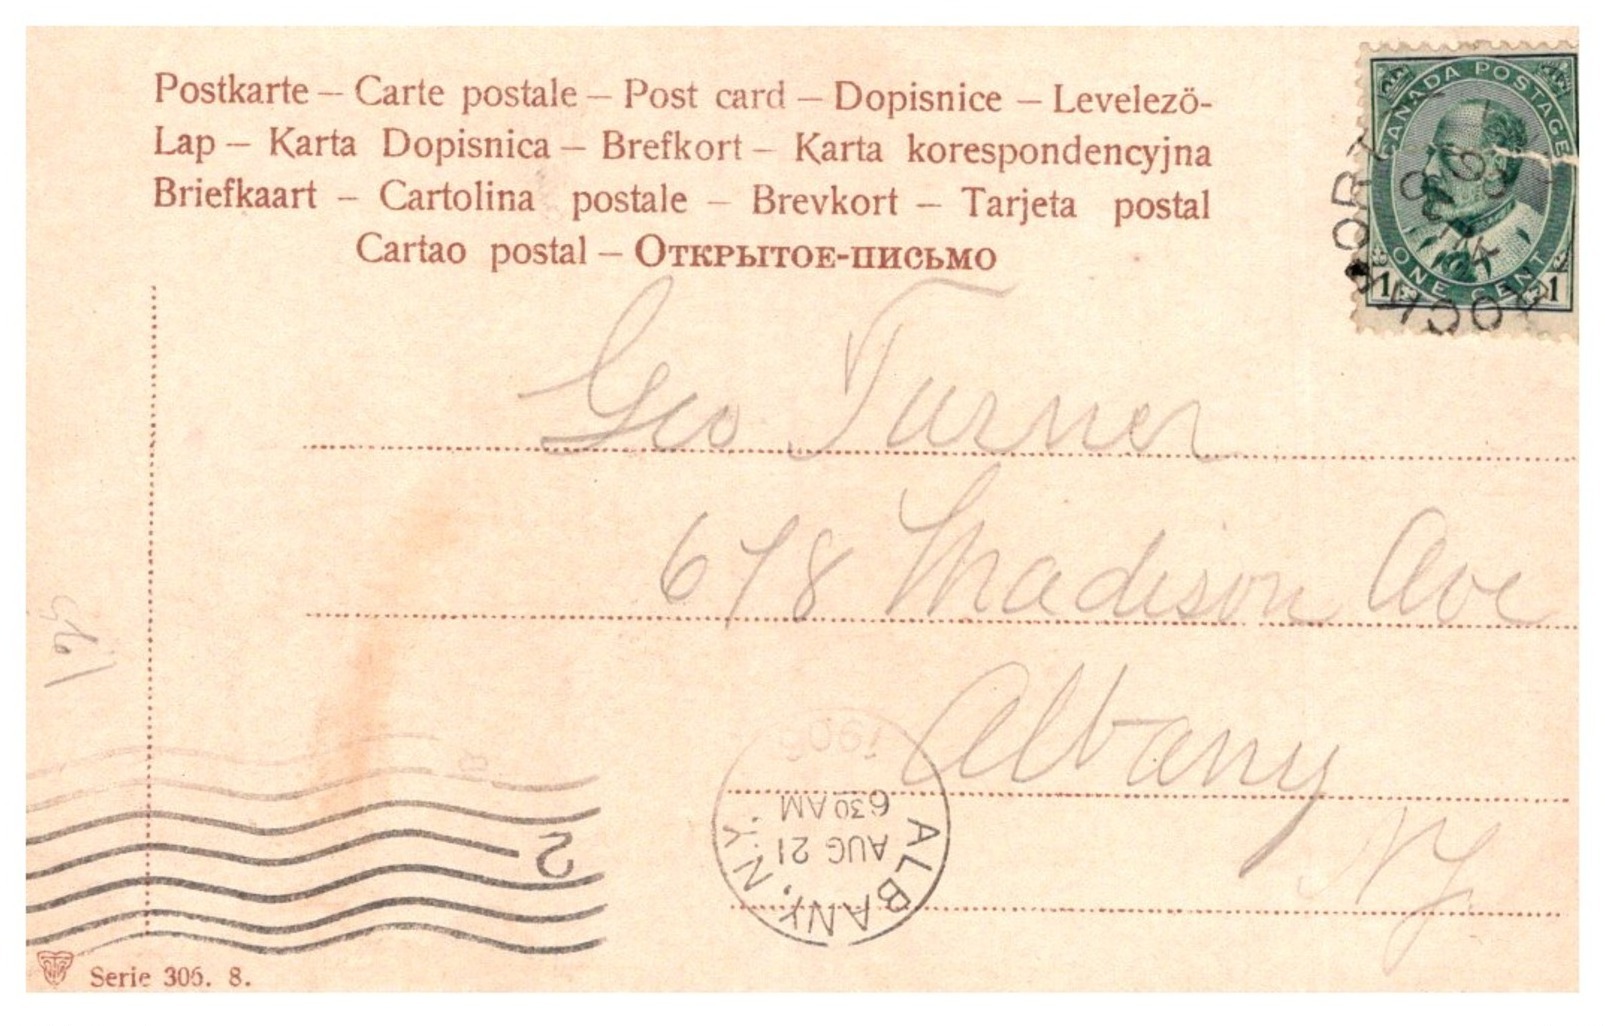 Postkarte – Carte postale – Post card – Dopisnice – Levelező-
Lap – Karta Dopisnica – Brefkort – Karta korespondencyjna
Briefkaart – Cartolina postale – Brevkort – Tarjeta postal
Cartao postal – Открытое-письмо
CANADA POSTAGE
1 ONE CENT 1
ROCKPORT
Geo Turner
678 Madison Ave
Albany
NY
ALBANY, N.Y.
AUG 21
630 AM
2
Serie 306. 8.